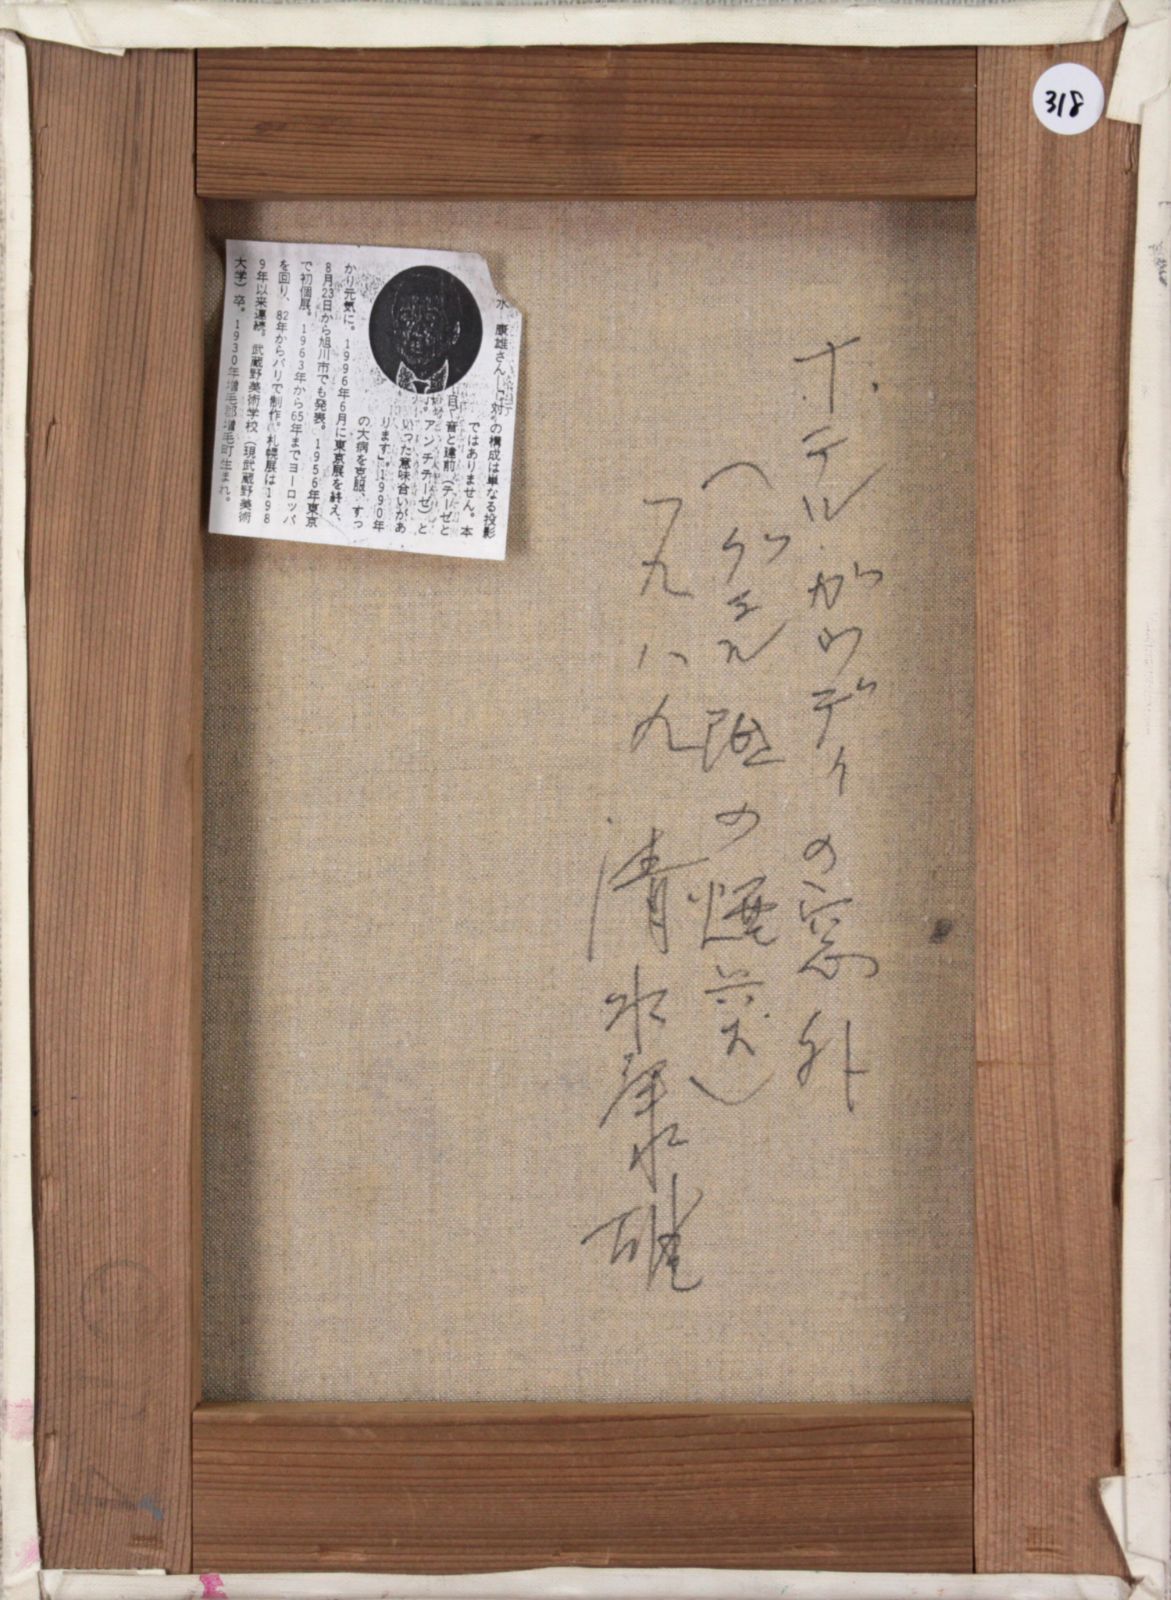 318
水 康雄さん＝「対」の構成は単なる投影
ではありません。本
音と建前（テーゼと
アンチテーゼ）と
いった意味合いがあ
ります」。1990年
の大病を克服、すっ
かり元気に。1996年6月に東京展を終え、
8月23日から旭川市でも発表。1956年東京
で初個展。1963年から65年までヨーロッパ
を回り、82年からパリで制作。札幌展は198
9年以来連続。武蔵野美術学校（現武蔵野美術
大学）卒。1930年増毛郡増毛町生まれ。
ホテルガウディの窓外
（グエル邸の煙突）
一九八九 清水康雄